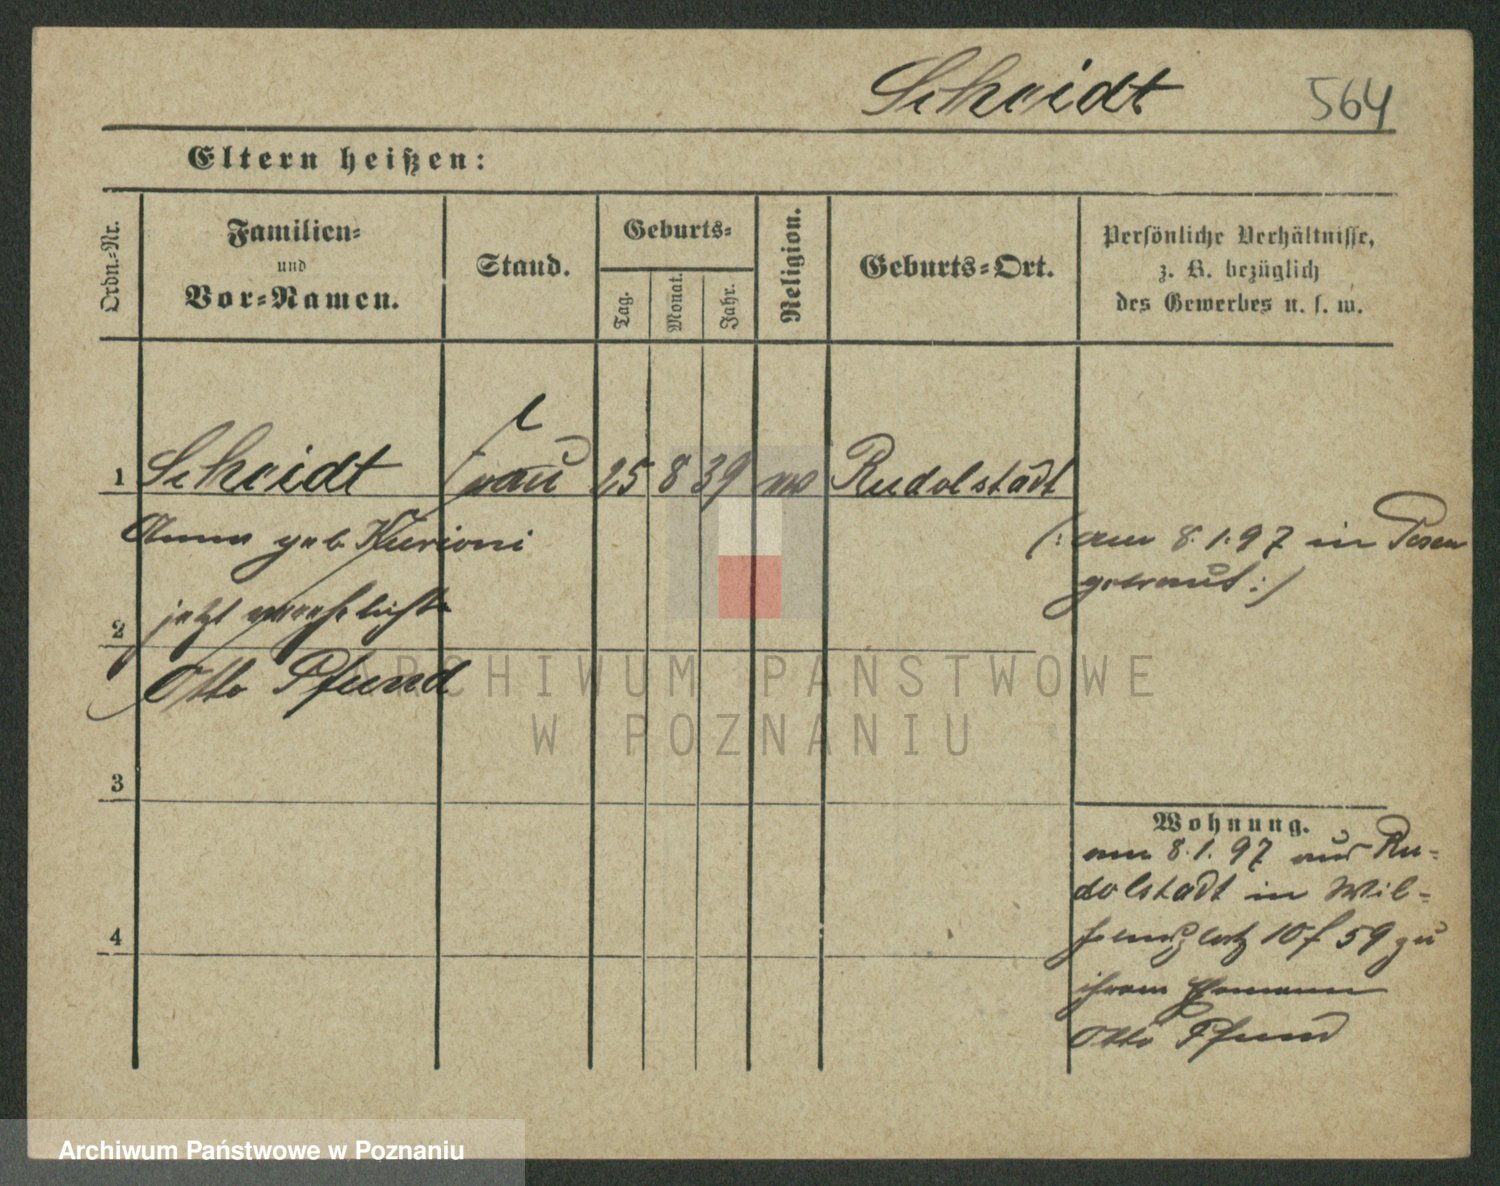 Scheidt 564
Eltern heißen:
Ordn.-Nr.
Familien-
und
Vor-Namen.
Stand.
Geburts-
Tag.
Monat.
Jahr.
Religion.
Geburts-Ort.
Persönliche Verhältnisse,
z. B. bezüglich
des Gewerbes u. s. w.
1 Scheidt Frau 25 8 39 Rudolstadt
Anna geb. Kurioni
(: am 8.1.97 in Posen
getraut :)
2 jetzt verehelichte
Otto Pfund
ARCHIWUM PAŃSTWOWE
W POZNANIU
3
Wohnung.
am 8.1.97 aus Ru-
dolstadt in Wil-
helmsplatz 10 f 59 zu
4
ihrem Ehemann
Otto Pfund
Archiwum Państwowe w Poznaniu